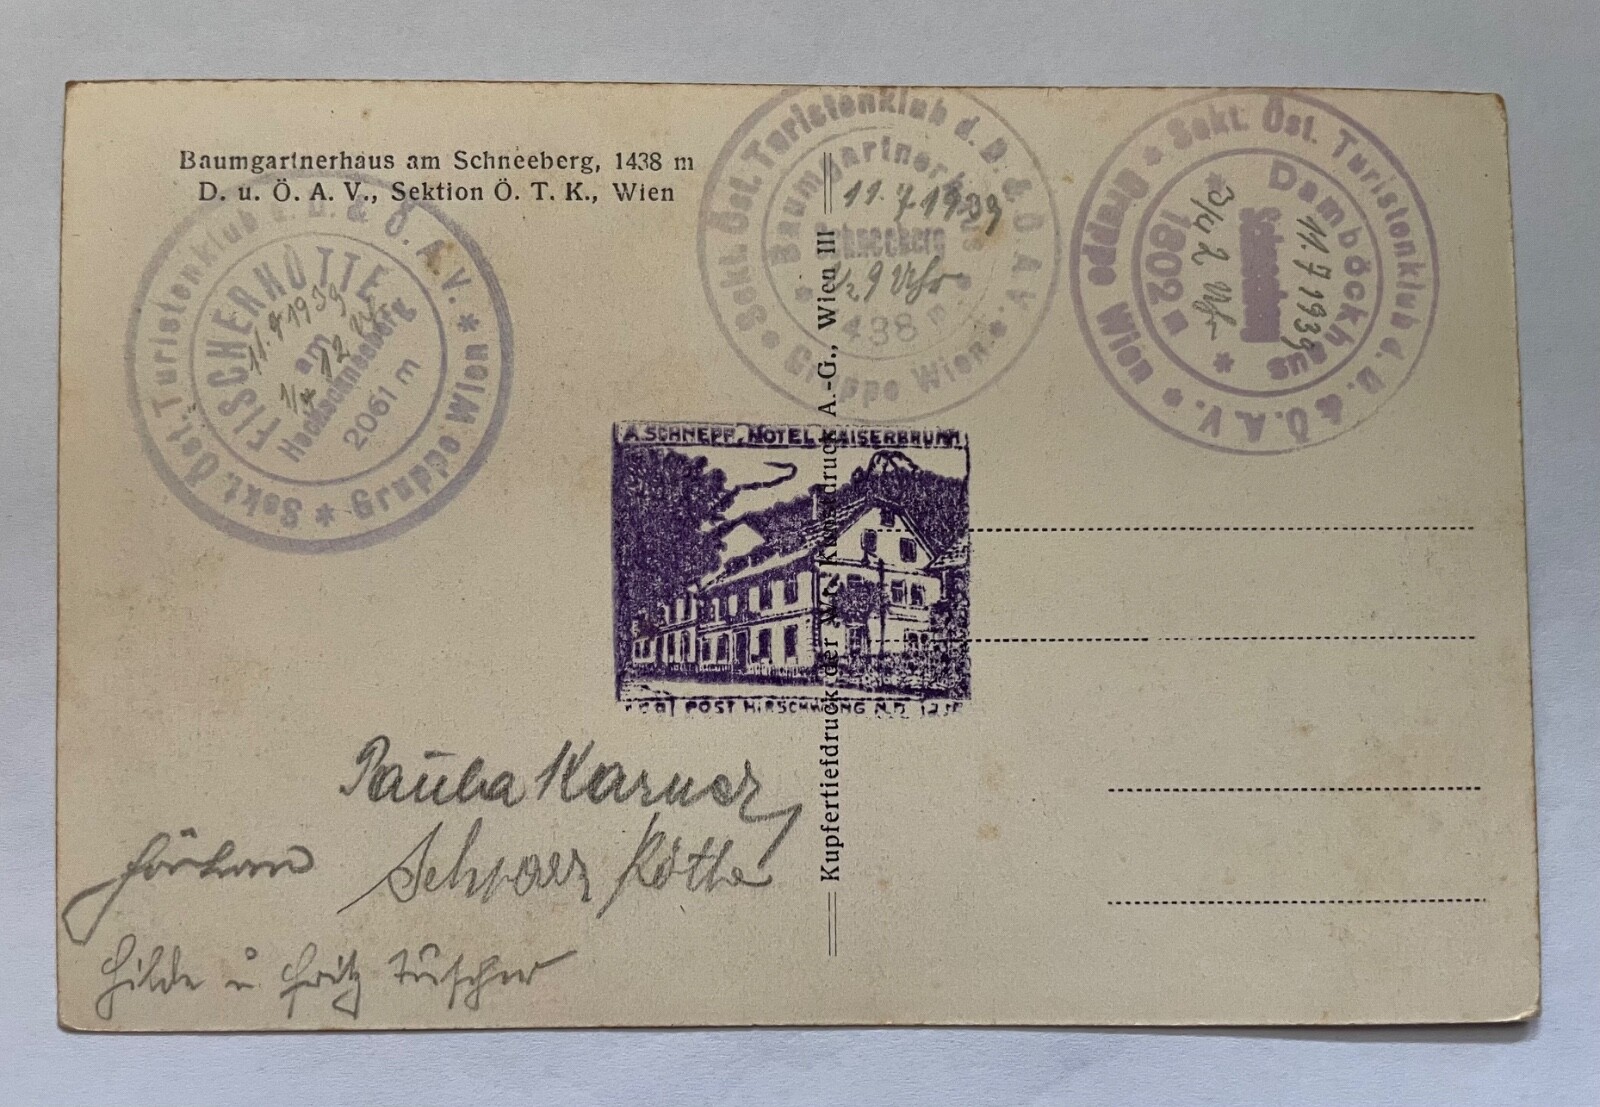 Baumgartnerhaus am Schneeberg, 1438 m
D. u. Ö. A. V., Sektion Ö. T. K., Wien
Sekt. Öst. Turistenklub d. D. & Ö. A. V. * Gruppe Wien *
FISCHERHÜTTE
11. 7 1939
am
1/4 12
Hochschneeberg
2061 m
Sekt. Öst. Turistenklub d. D. & Ö. A. V. * Gruppe Wien. *
Baumgartnerhaus
11. 7 1939
Schneeberg
1/2 9 Uhr
1438 m
Sekt. Öst. Turistenklub d. D. & Ö. A. V. * Gruppe Wien *
Damböckhaus
11. 7 1939
Schneeberg
3/4 2 Uhr
1802 m
A. SCHNEPF, HOTEL KAISERBRUNN
POST HIRSCHWANG N.Ö.
Kupfertiefdruck der Wr. Kunstdruck A.-G., Wien III
Karner
Schwarz Käthe
Hilde u Fritz Tuscher